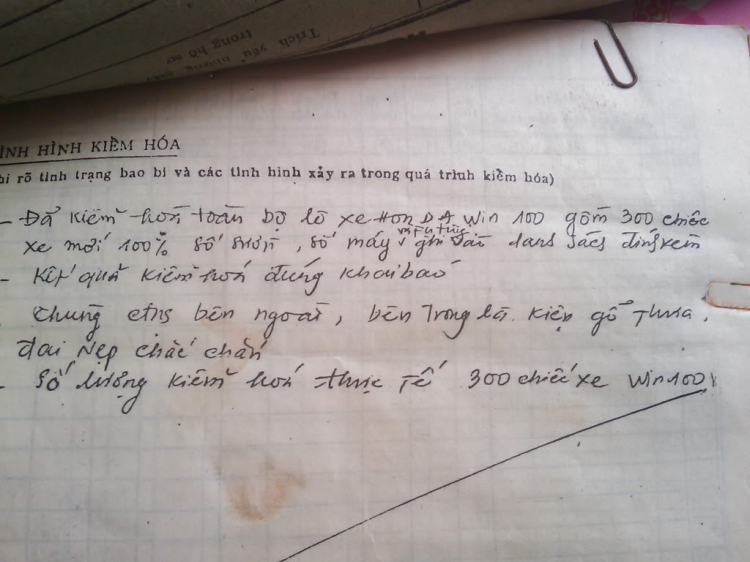 Trích yếu
trong hồ sơ
ÌNH HÌNH KIỂM HÓA
hi rõ tình trạng bao bì và các tình hình xảy ra trong quá trình kiểm hóa)
- Đã kiểm hoá toàn bộ lô xe HONDA Win 100 gồm 300 chiếc
xe mới 100% số sườn, số máy ghi danh sách đính kèm
- Kết quả kiểm hoá đúng khai báo
. Chung bên ngoài, bên trong là kiện gỗ thưa,
đai nẹp chắc chắn
- Số lượng kiểm hoá thực tế 300 chiếc xe Win 100